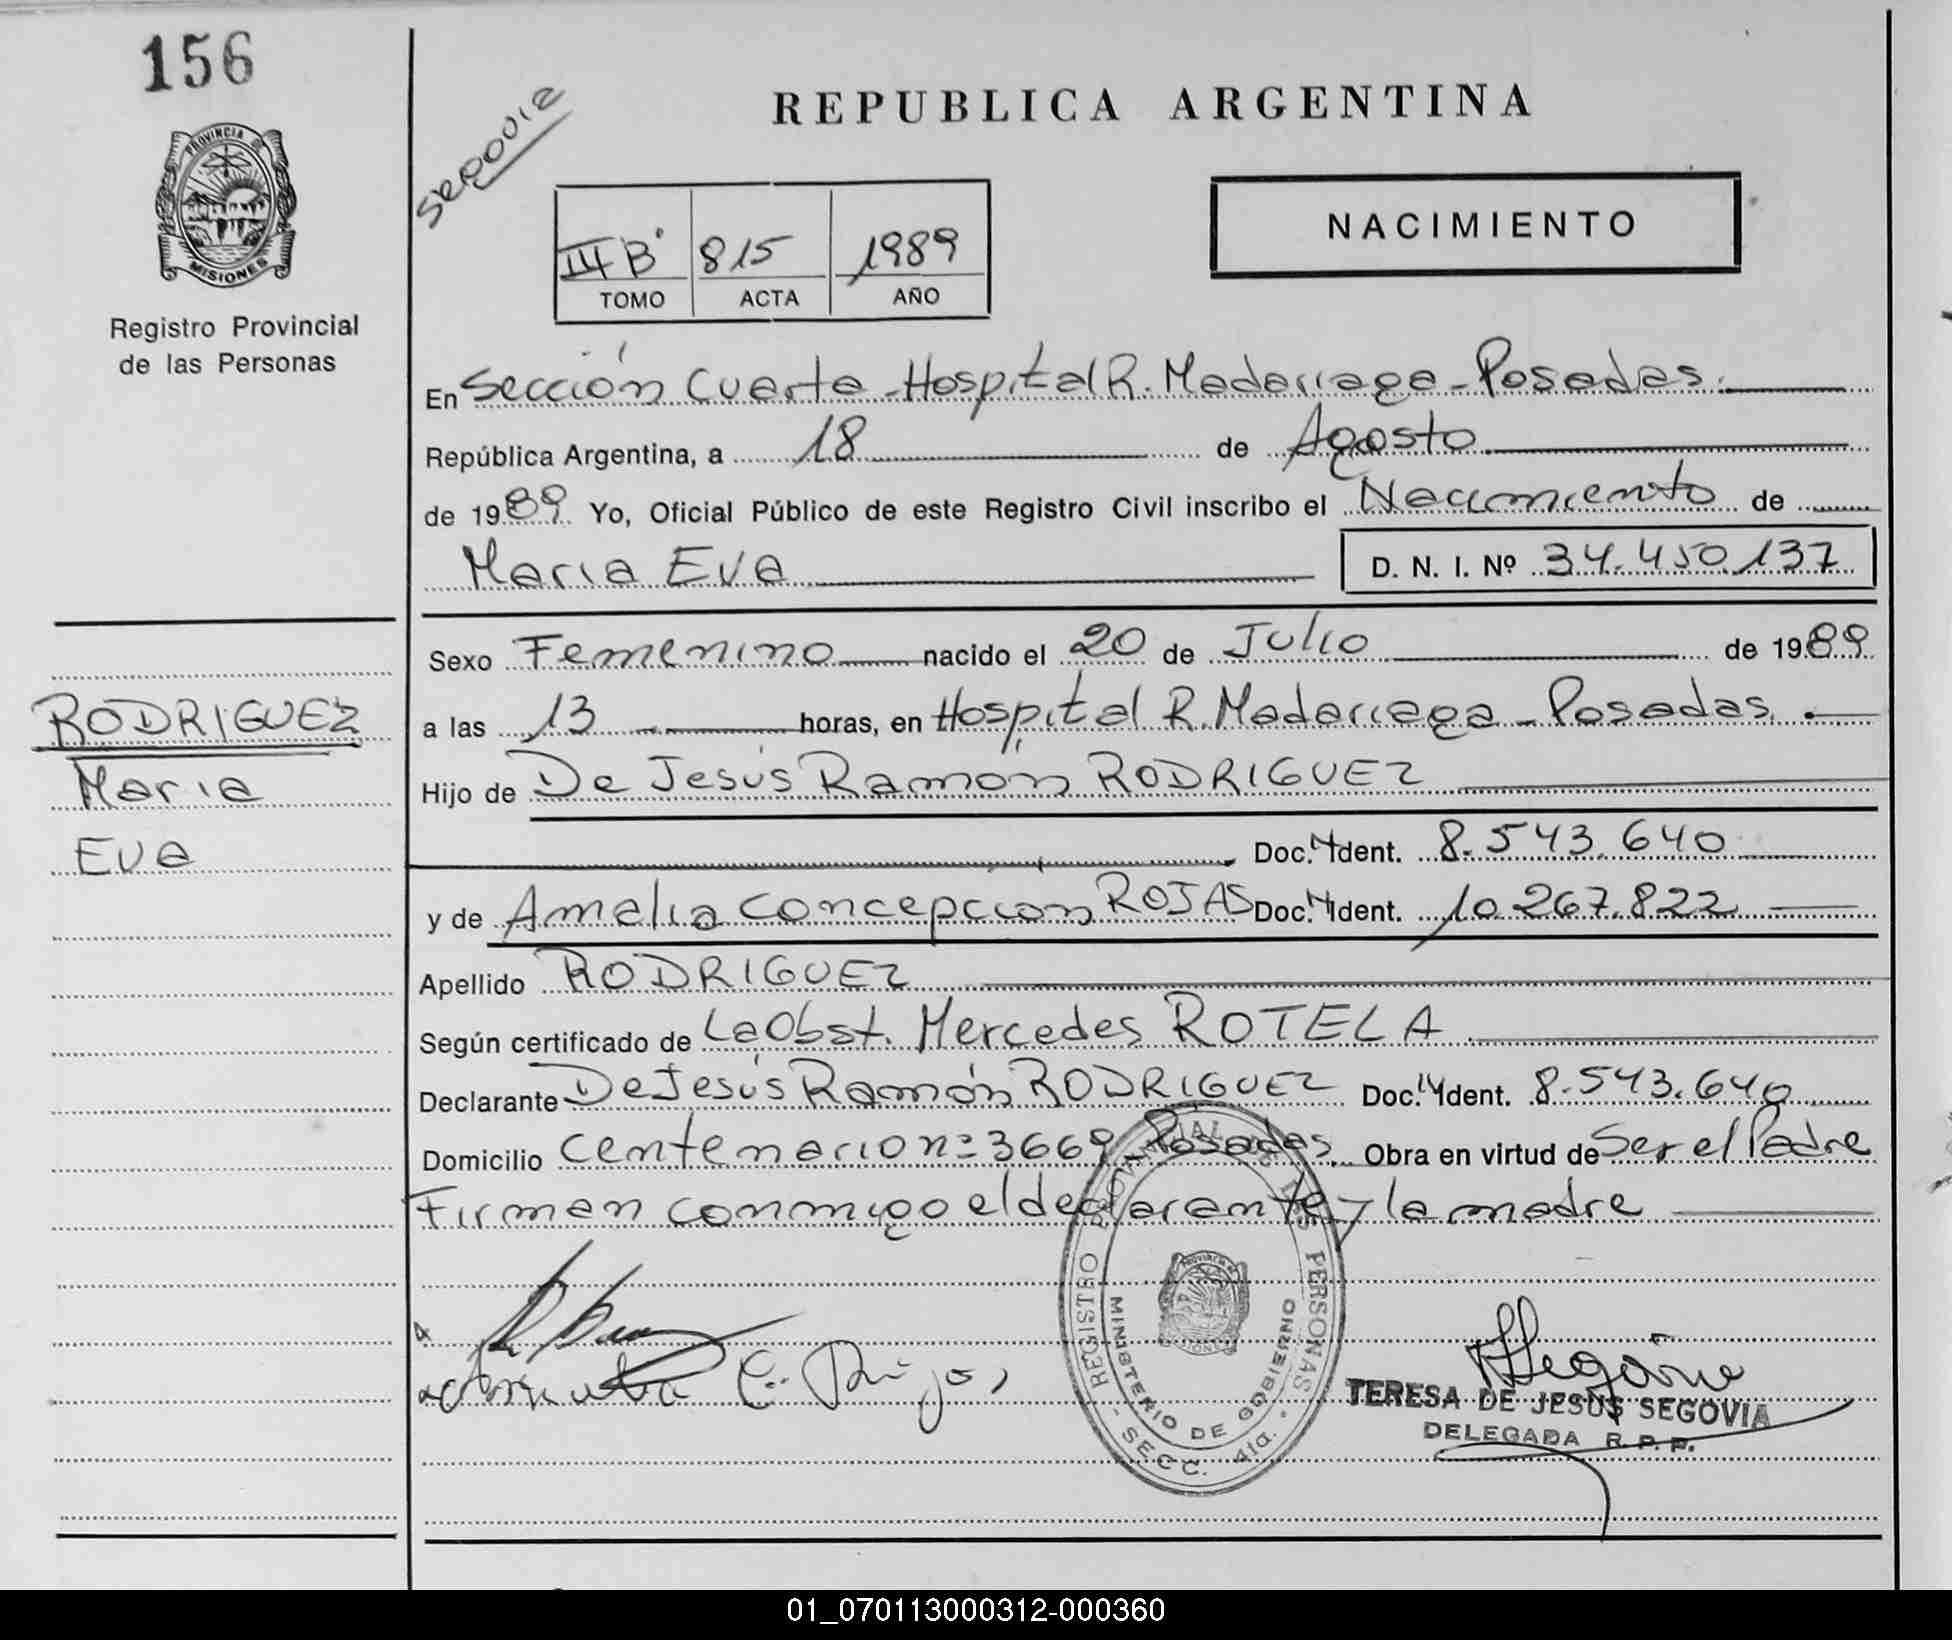 156
PROVINCIA DE
MISIONES
Registro Provincial
de las Personas
RODRIGUEZ
Maria
Eva
Segovia
REPUBLICA ARGENTINA
NACIMIENTO
815 1989
TOMO ACTA AÑO
En Sección Cuarta - Hospital R. Madariaga - Posadas.
República Argentina, a 18 de Agosto
de 1989 Yo, Oficial Público de este Registro Civil inscribo el Nacimiento de
Maria Eva D. N. I. Nº 34.450.137
Sexo Femenino nacido el 20 de Julio de 1989
a las 13 horas, en Hospital R. Madariaga - Posadas.
Hijo de De Jesús Ramón RODRIGUEZ
Doc. Ident. 8.543.640
y de Amalia Concepción ROJAS Doc. Ident. 10.267.822
Apellido RODRIGUEZ
Según certificado de La Obst. Mercedes ROTELA
Declarante De Jesús Ramón RODRIGUEZ Doc. Ident. 8.543.640
Domicilio Centenario nº 3669 Posadas. Obra en virtud de Ser el Padre
Firman conmigo el declarante y la madre
REGISTRO PROVINCIAL DE LAS PERSONAS
MINISTERIO DE GOBIERNO
- SECC. 4ta. -
TERESA DE JESUS SEGOVIA
DELEGADA R. P. P.
01_070113000312-000360